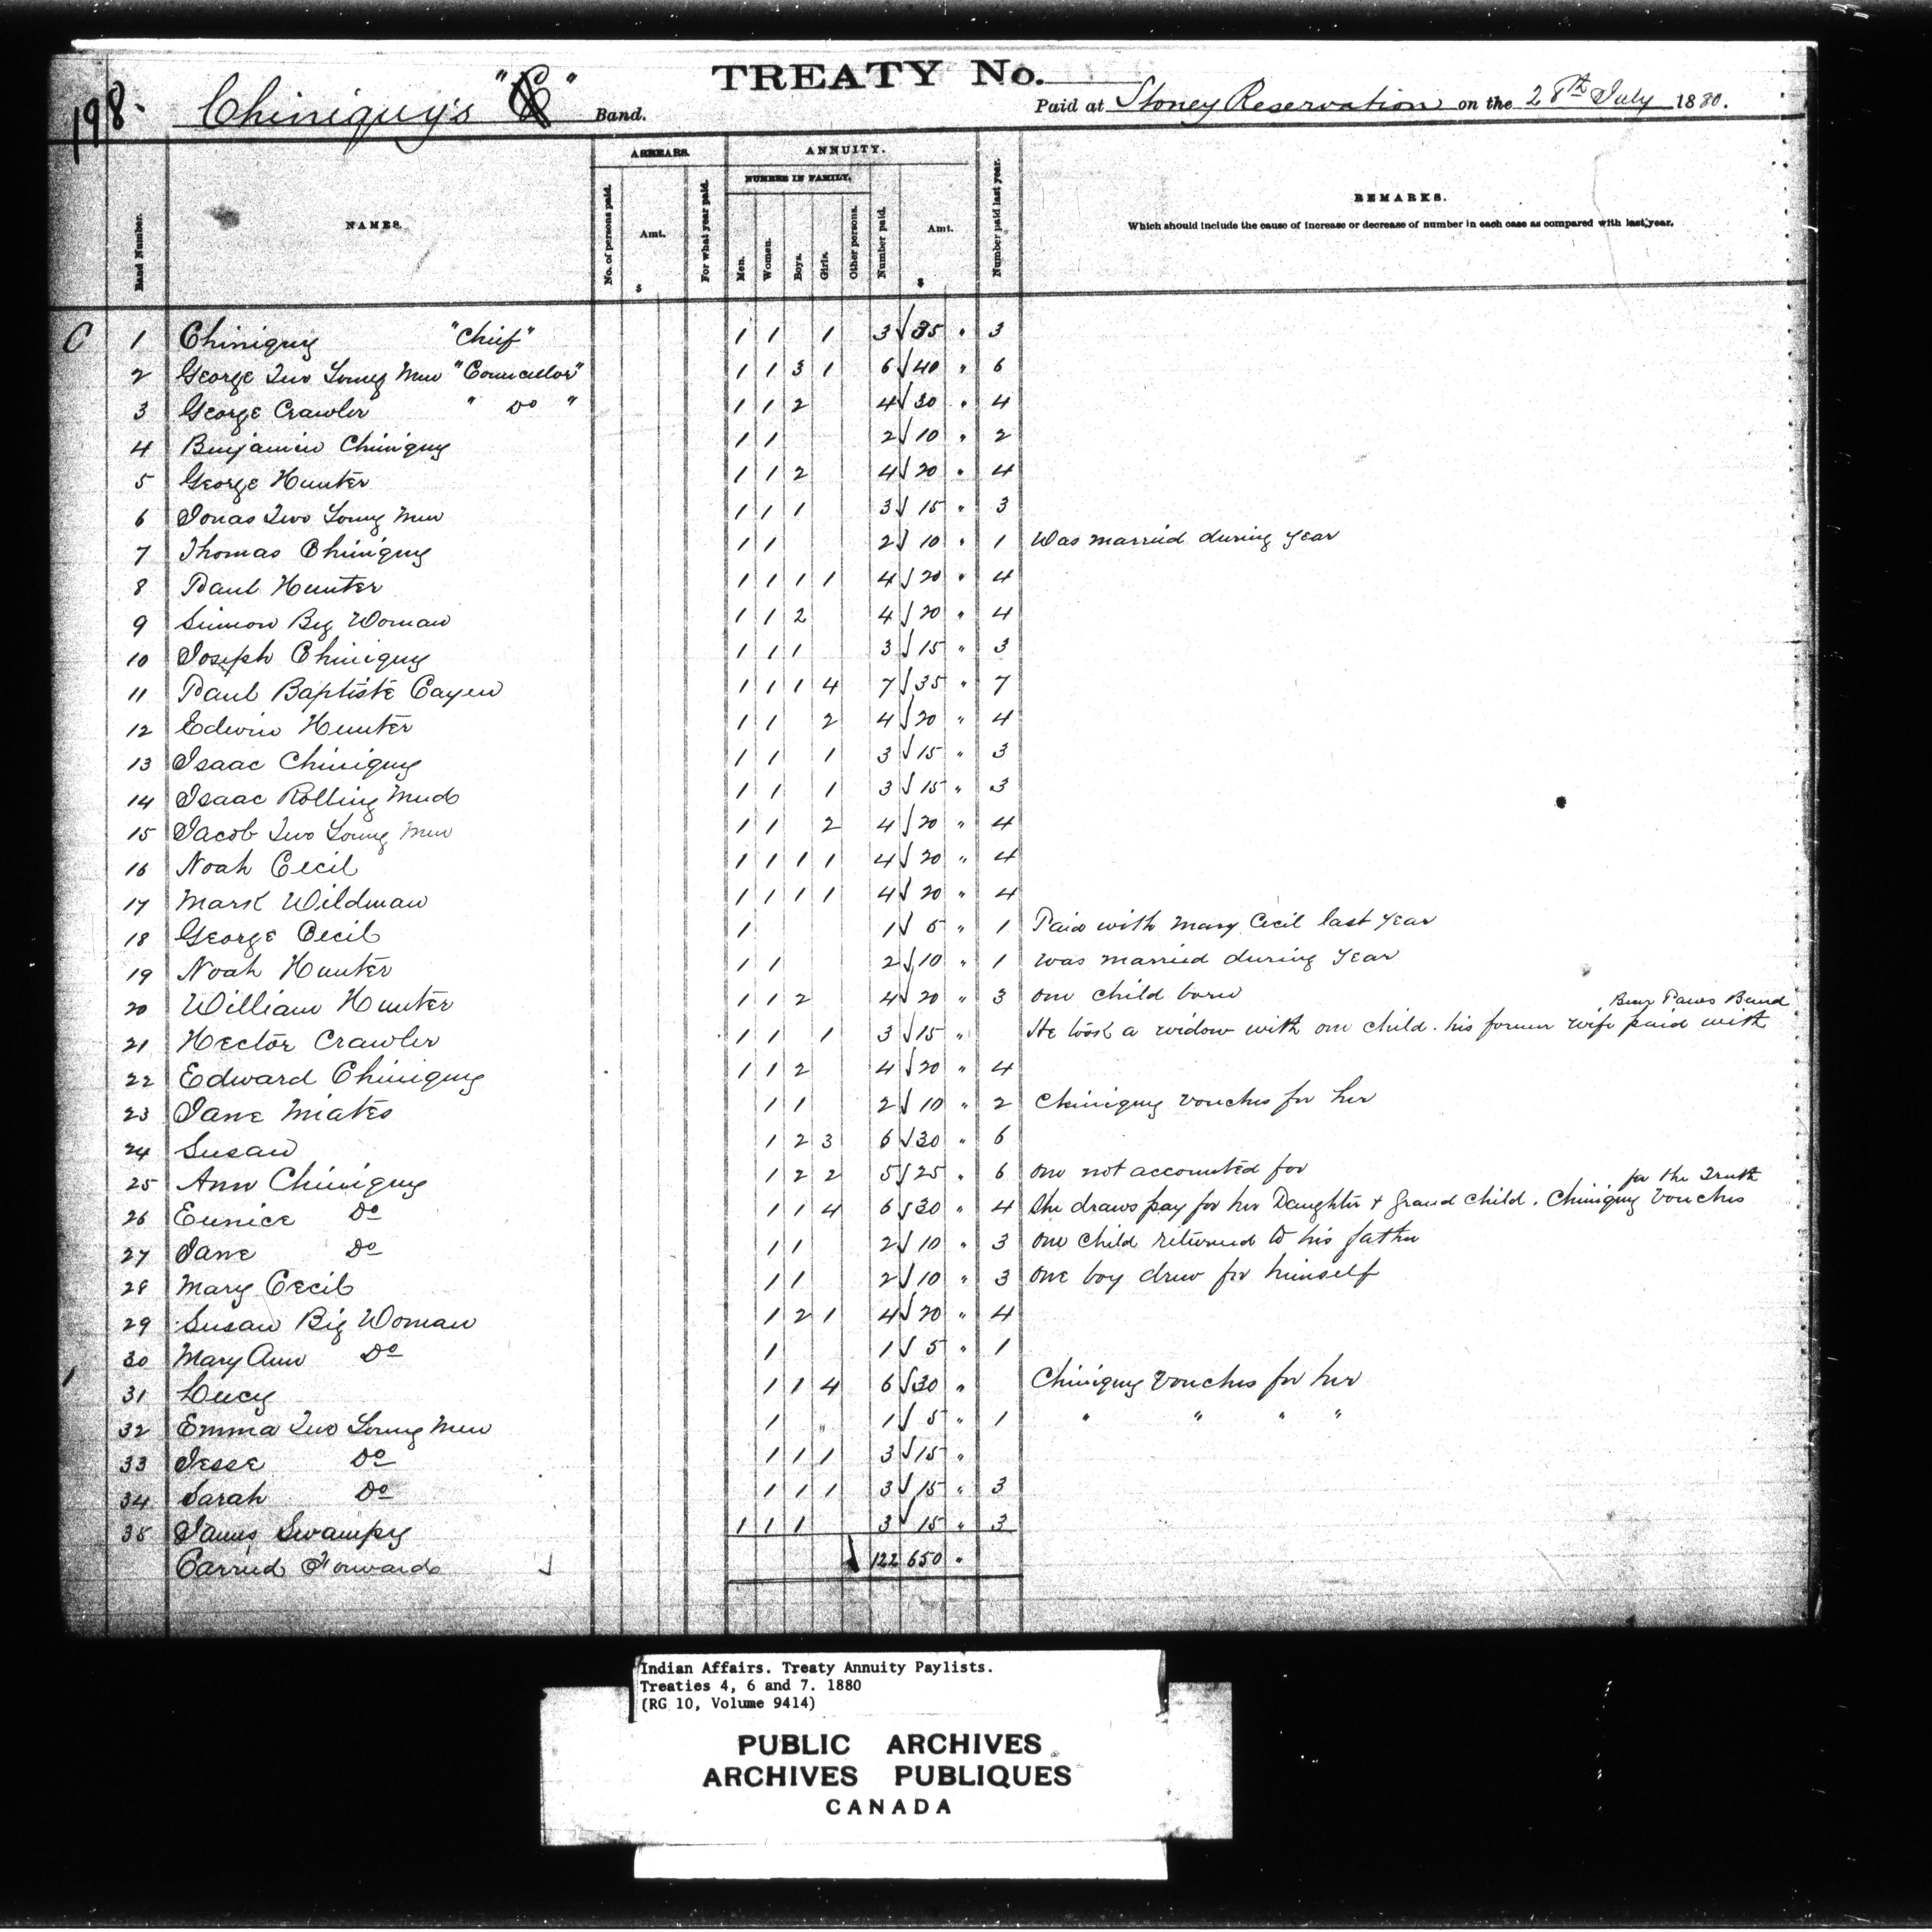 TREATY No.
198. Chiniquy's "C" Band. Paid at Stoney Reservation on the 28th July 1880.
ARREARS. ANNUITY.
NUMBER IN FAMILY.
Band Number. NAMES. No. of persons paid. Amt. $ For what year paid. Men. Women. Boys. Girls. Other persons. Number paid. Amt. $ Number paid last year. REMARKS.
Which should include the cause of increase or decrease of number in each case as compared with last year.
C 1 Chiniquy "Chief" 1 1 1 3 35 " 3
2 George Two Young Men "Councillor" 1 1 3 1 6 40 " 6
3 George Crawler " Do " 1 1 2 4 30 " 4
4 Benjamin Chiniquy 1 1 2 10 " 2
5 George Hunter 1 1 2 4 20 " 4
6 Jonas Two Young Men 1 1 1 3 15 " 3
7 Thomas Chiniquy 1 1 2 10 " 1 Was married during year
8 Paul Hunter 1 1 1 1 4 20 " 4
9 Simeon Big Woman 1 1 2 4 20 " 4
10 Joseph Chiniquy 1 1 1 3 15 " 3
11 Paul Baptiste Cayen 1 1 1 4 7 35 " 7
12 Edwin Hunter 1 1 2 4 20 " 4
13 Isaac Chiniquy 1 1 1 3 15 " 3
14 Isaac Rolling Mud 1 1 1 3 15 " 3
15 Jacob Two Young Men 1 1 2 4 20 " 4
16 Noah Cecil 1 1 1 1 4 20 " 4
17 Mark Wildman 1 1 1 1 4 20 " 4
18 George Cecil 1 1 5 " 1 Paid with Mary Cecil last year
19 Noah Hunter 1 1 2 10 " 1 was married during year
20 William Hunter 1 1 2 4 20 " 3 one child born
21 Hector Crawler 1 1 1 3 15 " He took a widow with one child. his former wife paid with Bear Paws Band
22 Edward Chiniquy 1 1 2 4 20 " 4
23 Jane Miates 1 1 2 10 " 2 Chiniquy vouches for her
24 Susan 1 2 3 6 30 " 6
25 Ann Chiniquy 1 2 2 5 25 " 6 one not accounted for
26 Eunice Do 1 1 4 6 30 " 4 She draws pay for her Daughter + Grand Child. Chiniquy vouches for the Truth
27 Jane Do 1 1 2 10 " 3 one child returned to his father
28 Mary Cecil 1 1 2 10 " 3 one boy drew for himself
29 Susan Big Woman 1 2 1 4 20 " 4
30 Mary Ann Do 1 1 5 " 1
31 Lucy 1 1 4 6 30 " Chiniquy vouches for her
32 Emma Two Young Men 1 " 1 5 " 1 " " " "
33 Jesse Do 1 1 1 3 15 "
34 Sarah Do 1 1 1 3 15 " 3
35 James Swampy 1 1 1 3 15 " 3
Carried Forward 122 650 "
Indian Affairs. Treaty Annuity Paylists.
Treaties 4, 6 and 7. 1880
(RG 10, Volume 9414)
PUBLIC ARCHIVES
ARCHIVES PUBLIQUES
CANADA